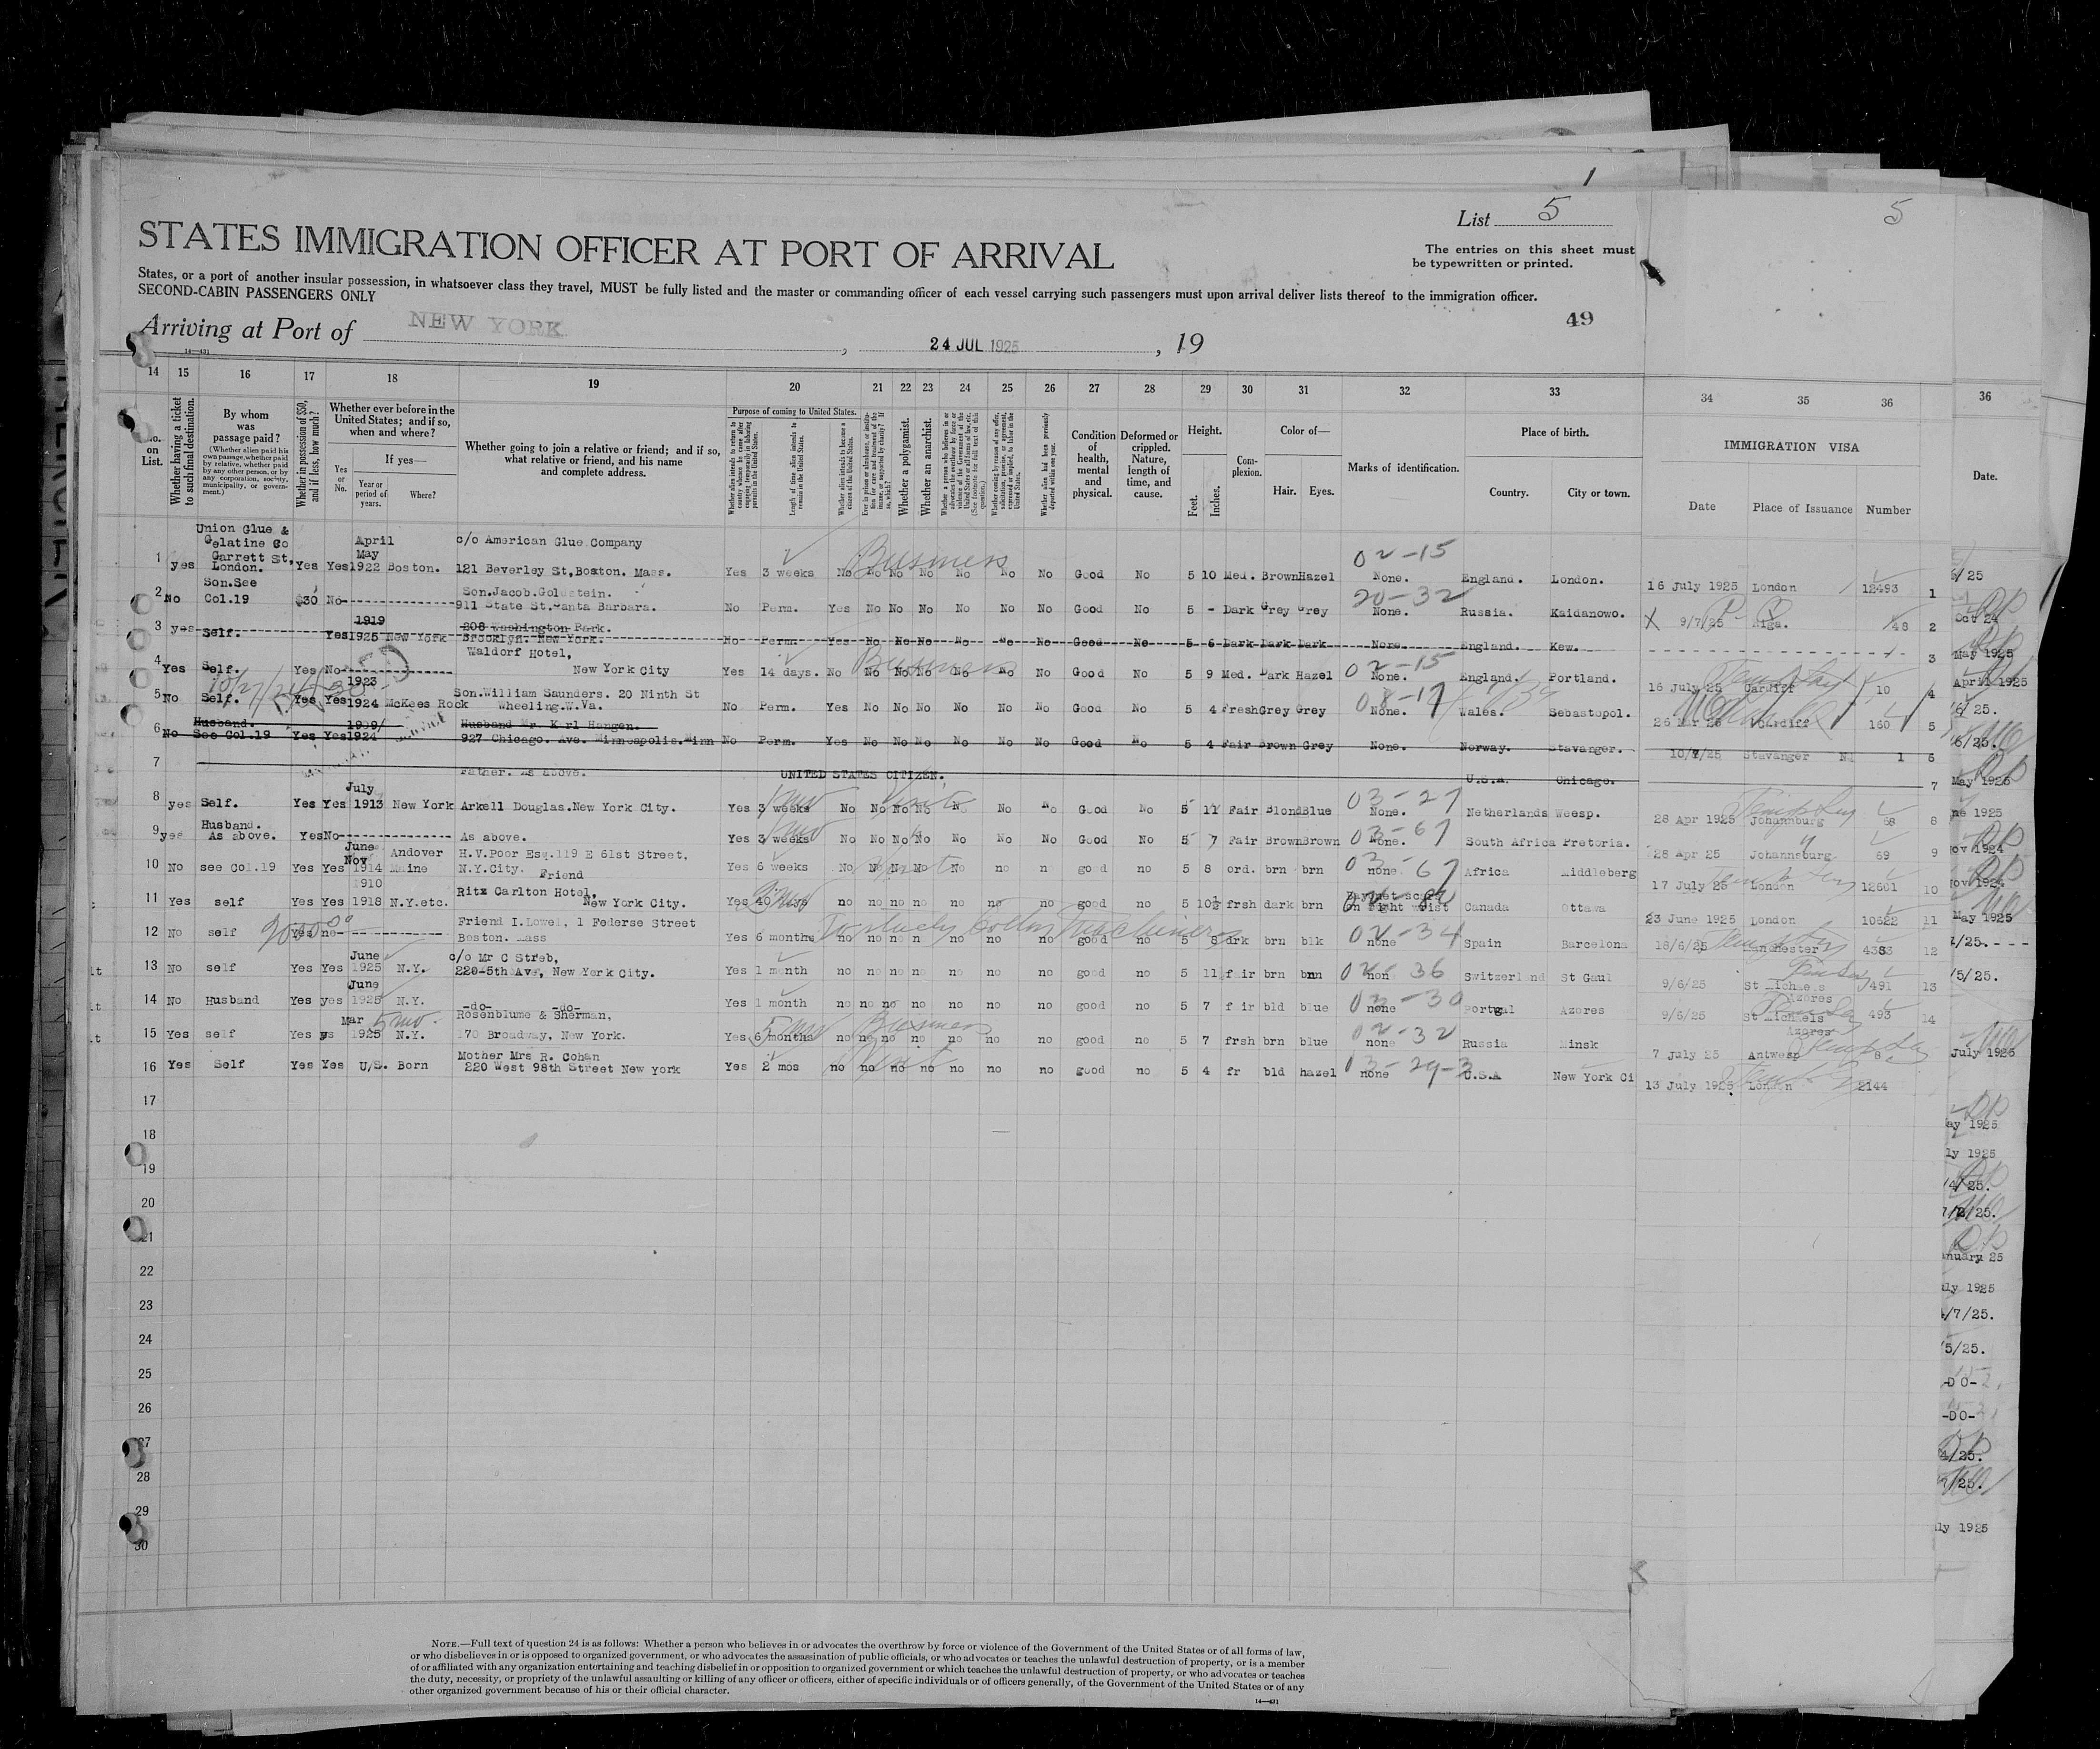 1
List 5
5
STATES IMMIGRATION OFFICER AT PORT OF ARRIVAL
The entries on this sheet must
be typewritten or printed.
States, or a port of another insular possession, in whatsoever class they travel, MUST be fully listed and the master or commanding officer of each vessel carrying such passengers must upon arrival deliver lists thereof to the immigration officer.
SECOND-CABIN PASSENGERS ONLY
49
Arriving at Port of NEW YORK, 24 JUL 1925, 19
14—431
14 15 16 17 18 19 20 21 22 23 24 25 26 27 28 29 30 31 32 33 34 35 36 36
No. on List.
Whether having a ticket to such final destination.
By whom was passage paid?
(Whether alien paid his own passage, whether paid by relative, whether paid by any other person, or by any corporation, society, municipality, or government.)
Whether in possession of $50, and if less, how much?
Whether ever before in the United States; and if so, when and where?
Yes or No.
If yes—
Year or period of years.
Where?
Whether going to join a relative or friend; and if so, what relative or friend, and his name and complete address.
Purpose of coming to United States.
Whether alien intends to return to country whence he came after engaging temporarily in laboring pursuits in the United States.
Length of time alien intends to remain in the United States.
Whether alien intends to become a citizen of the United States.
Whether a polygamist.
Whether an anarchist.
Condition of health, mental and physical.
Deformed or crippled. Nature, length of time, and cause.
Height.
Feet. Inches.
Complexion.
Color of—
Hair. Eyes.
Marks of identification.
Place of birth.
Country. City or town.
IMMIGRATION VISA
Date Place of Issuance Number
Date.
Union Glue &
Gelatine Co
Garrett St,
April
May
c/o American Glue Company
Business
02-15
1 yes London. Yes Yes 1922 Boston. 121 Beverley St, Boston. Mass. Yes 3 weeks No No No No No No No Good No 5 10 Med. Brown Hazel None. England. London. 16 July 1925 London 12493 1
Son. See
Son. Jacob. Goldstein.
20-32
2 No Col.19 $30 No 911 State St. Santa Barbara. No Perm. Yes No No No No No No Good No 5 - Dark Grey Grey None. Russia. Kaidanowo. 9/7/25 Riga. 48 2
1919
208 Washington Park.
3 yes Self. Yes 1925 New York Brooklyn. New York. No Perm. Yes No No No No No No Good No 5 6 Dark Dark Dark None. England. Kew. 3
Waldorf Hotel,
Business
02-15
4 Yes Self. Yes No New York City Yes 14 days. No No No No No No No Good No 5 9 Med. Dark Hazel None. England. Portland. 16 July 25 Cardiff 10 4
1923
Son. William Saunders. 20 Ninth St
08-17
5 No Self. Yes Yes 1924 McKees Rock Wheeling. W. Va. No Perm. Yes No No No No No No Good No 5 4 Fresh Grey Grey None. Wales. Sebastopol. 26 Mar 25 Cardiff 160 5
Husband. 1909/ Husband Mr. Karl Hangen.
6 No See Col.19 Yes Yes 1924 927 Chicago. Ave. Minneapolis. Minn No Perm. Yes No No No No No No Good No 5 4 Fair Brown Grey None. Norway. Stavanger. 10/7/25 Stavanger 1 6
7 Father. As above. UNITED STATES CITIZEN. U.S.A. Chicago. 7
July
Visit
03-27
8 yes Self. Yes Yes 1913 New York Arkell Douglas. New York City. Yes 3 weeks No No No No No No No Good No 5 11 Fair Blond Blue None. Netherlands Weesp. 28 Apr 1925 Johannsburg 68 8
Husband.
03-67
9 yes As above. Yes No As above. Yes 3 weeks No No No No No No No Good No 5 7 Fair Brown Brown None. South Africa Pretoria. 28 Apr 25 Johannsburg. 69 9
June
Nov Andover H.V. Poor Esq. 119 E 61st Street,
03-67
10 No see Col.19 Yes Yes 1914 Maine N.Y. City. Friend Yes 6 weeks No No No No No no n good no 5 8 ord. brn brn none Africa Middleberg 17 July 25 London 12601 10
1910
Ritz Carlton Hotel,
11 Yes self Yes Yes 1918 N.Y. etc. New York City. Yes 40 days no no no no no no no good no 5 10½ frsh dark brn on right wrist Canada Ottawa 23 June 1925 London 10622 11
Friend I. Lowel, 1 Federse Street
To study Cotton Machinery
02-34
12 No self Yes no Boston. Mass Yes 6 months no no no n no no no good no 5 8 drk brn blk none Spain Barcelona 18/6/25 Manchester 4383 12
June
c/o Mr C Streb,
02-36
13 No self Yes Yes 1925 N.Y. 220-5th Ave, New York City. Yes 1 month no no no no no no no good no 5 11 fair brn brn non Switzerland St Gaul 9/6/25 St Michaels Azores 491 13
June
03-30
14 No Husband Yes yes 1925 N.Y. -do- -do- Yes 1 month no no no no no no no good no 5 7 fair bld blue none Portgal Azores 9/6/25 St Michaels Azores 493 14
Mar 5 mo.
Rosenblume & Sherman,
5 mo Business
02-32
15 Yes self Yes ys 1925 N.Y. 170 Broadway, New York. Yes 6 months no no no no no no no good no 5 7 frsh brn blue none Russia Minsk 7 July 25 Antwesp 8 15
Mother Mrs R. Cohan
Visit
16 Yes Self Yes Yes U/S. Born 220 West 98th Street New York Yes 2 mos no no no no no no no good no 5 4 fr bld hazel none U.S.A New York Ci 13 July 1925 London 2144
17
18
19
20
21
22
23
24
25
26
27
28
29
30
Oct 24
May 1925
April 1925
May 1925
Nov 1924
May 1925
July 1925
NOTE.—Full text of question 24 is as follows: Whether a person who believes in or advocates the overthrow by force or violence of the Government of the United States or of all forms of law,
or who disbelieves in or is opposed to organized government, or who advocates the assassination of public officials, or who advocates or teaches the unlawful destruction of property, or is a member
of or affiliated with any organization entertaining and teaching disbelief in or opposition to organized government or which teaches the unlawful destruction of property, or who advocates or teaches
the duty, necessity, or propriety of the unlawful assaulting or killing of any officer or officers, either of specific individuals or of officers generally, of the Government of the United States or of any
other organized government because of his or their official character.
14—431